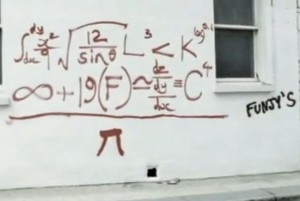 ∫ dy/dx x²/9 √12/sinθ L³ < K log 1
∞ + 19(F) ≃ dz/dy/dx ≡ C⁴
π
FUNJY'S